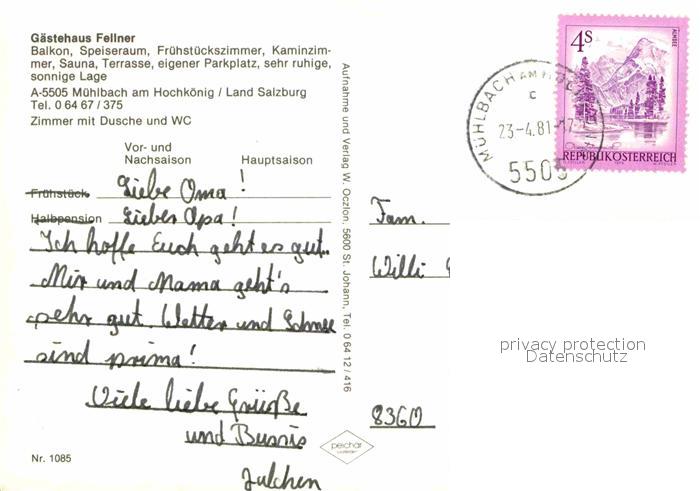 Gästehaus Fellner
Balkon, Speiseraum, Frühstückszimmer, Kaminzim-
mer, Sauna, Terrasse, eigener Parkplatz, sehr ruhige,
sonnige Lage
A-5505 Mühlbach am Hochkönig / Land Salzburg
Tel. 0 64 67 / 375
Zimmer mit Dusche und WC
Vor- und
Nachsaison Hauptsaison
Frühstück Liebe Oma!
Halbpension Lieber Opa!
Ich hoffe Euch geht es gut.
Mir und Mama geht's
sehr gut. Wetter und Schnee
sind prima!
Viele liebe Grüße
und Bussis
Julchen
Nr. 1085
Aufnahme und Verlag W. Oczlon, 5600 St. Johann, Tel. 0 64 12 / 416
peichär
ALMSEE
4S
REPUBLIK ÖSTERREICH
MÜHLBACH AM
c
23-4.81-17
5505
Fam.
Willi
8360
privacy protection
Datenschutz